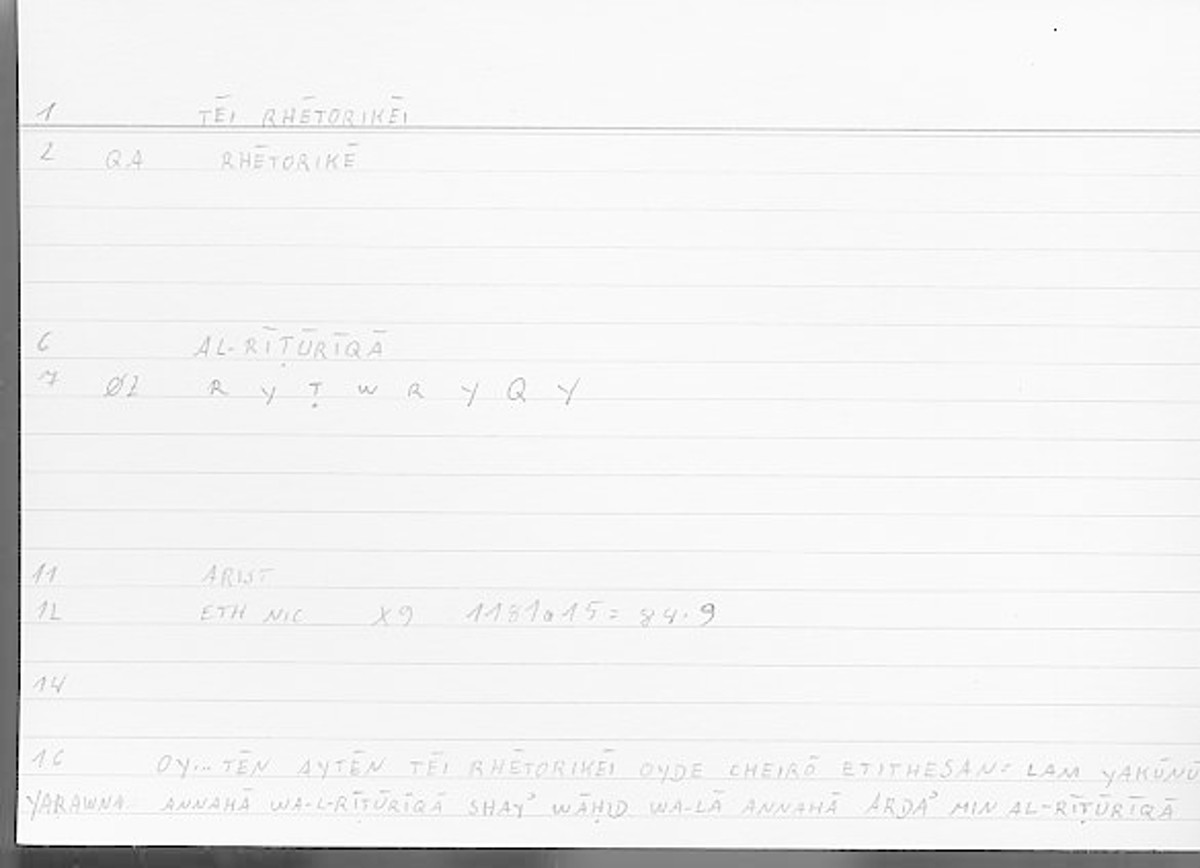 1 TĒI RHĒTORIKĒI
2 QA RHĒTORIKĒ
6 AL-RĪṬŪRĪQĀ
7 ØZ R Y Ṭ W R Y Q Y
11 ARIST
12 ETH NIC X9 1181a15= 84.9
14
16 OY... TĒN AYTĒN TĒI RHĒTORIKĒI OYDE CHEIRŌ ETITHESAN= LAM YAKŪNŪ
YARAWNA ANNAHĀ WA-L-RĪṬŪRĪQĀ SHAYʾ WĀḤID WA-LĀ ANNAHĀ ARDAʾ MIN AL-RĪṬŪRĪQĀ